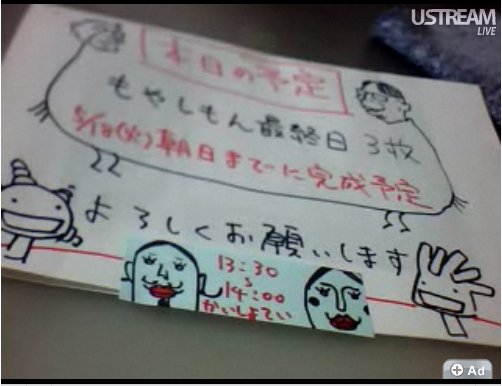 USTREAM
LIVE
本日の予定
もやしもん最終日 3枚
5/18(火)朝日までに完成予定
よろしくお願いします
13:30
〜
14:00
かいしよてい
+ Ad